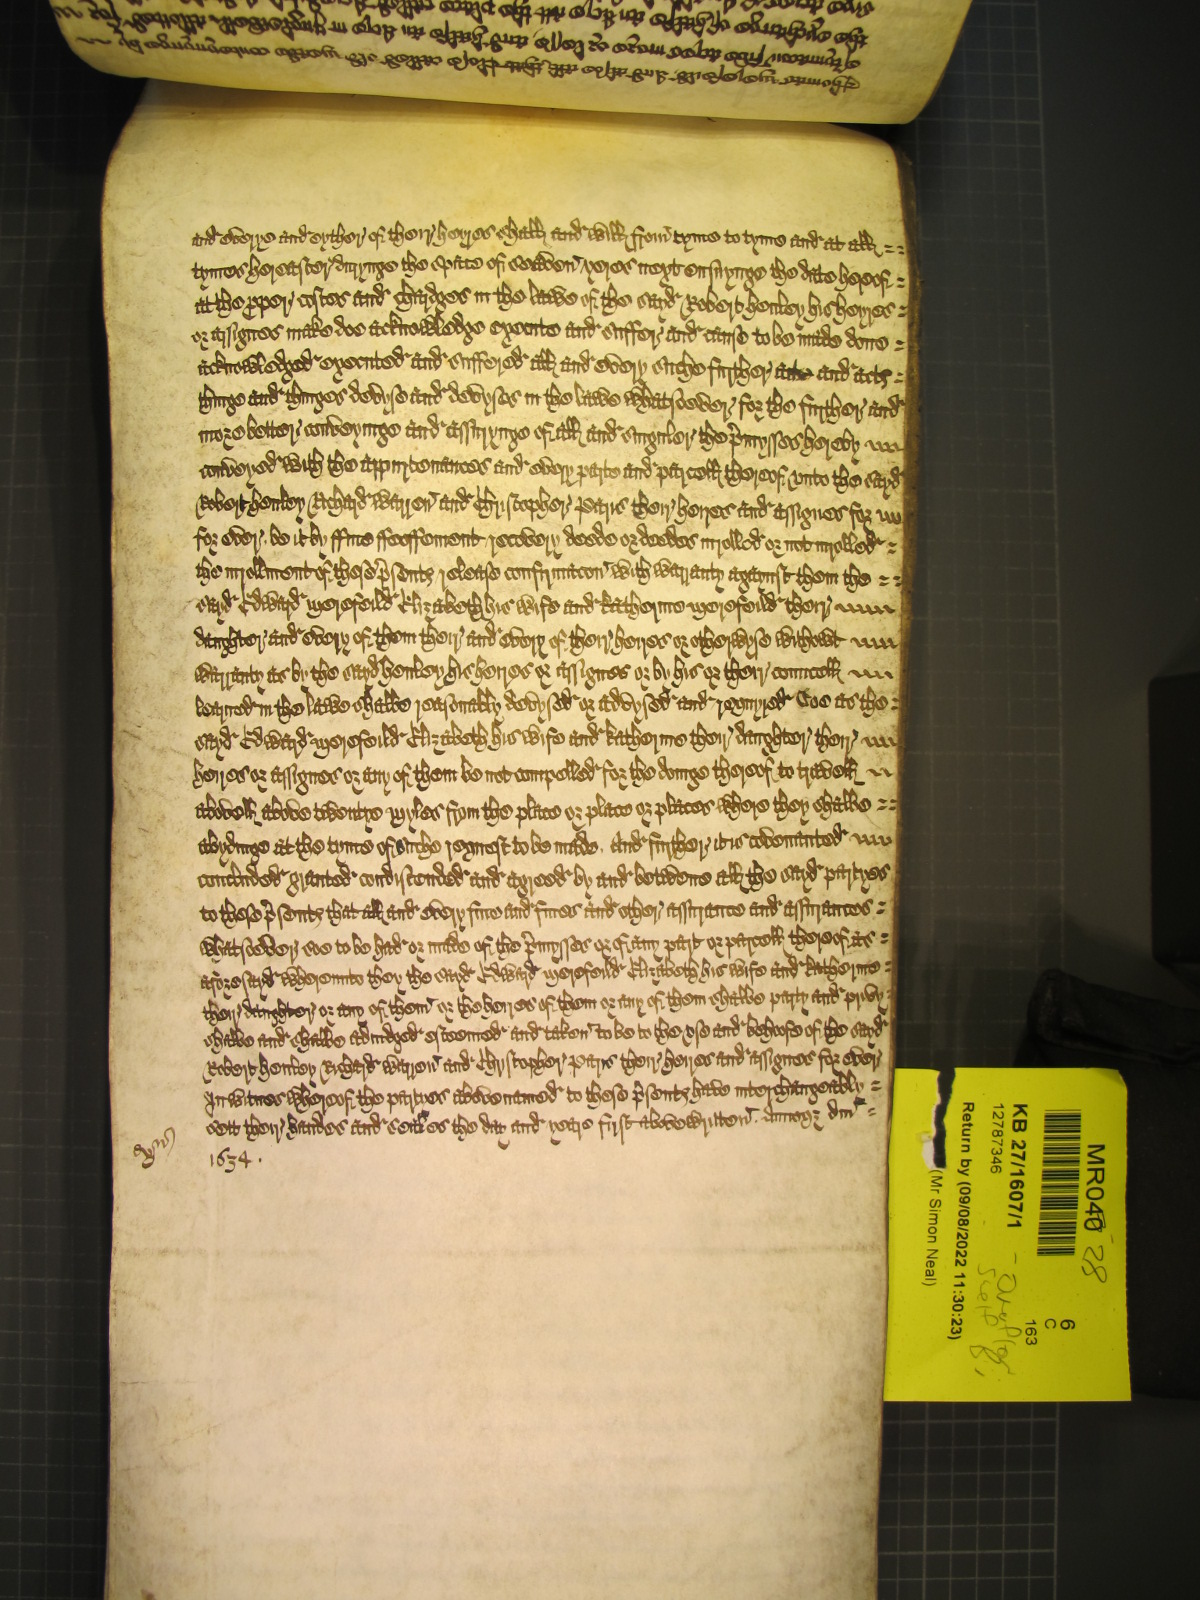 and everye and eyther of their heyres shall and will from tyme to tyme and at all
tymes hereafter duringe the space of seaven yeres next ensuynge the date hereof
at the pper costes and chardges in the lawe of the sayd Robert Henley his heyres
or assignes make doe acknowledge execute and suffer and cause to be made done
acknowledged executed and suffered all and every suche further acte and acts
thinge and thinges devyse and devyses in the lawe whatsoever for the further and
more better conveyinge and assurynge of all and singuler the p'mysses hereby
conveyed with the appurtenances and every parte and parcell thereof unto the sayd
Robert Henley Richard Warren and Christopher Paris their heires and assignes for
for ever be it by ffine ffeoffement recovery deede or deedes inrolled or not inrolled
the inrollment of these p'sents release confirmacon with warranty against them the
sayd Edward Merefeild Elizabeth his wife and Katherine Merefeild their
daughter and every of them their and every of their heires or otherwyse without
warranty as by the sayd Henley his heires or assignes or by his or their councell
learned in the lawe shalbe reasonably devysed or advysed and requyred Soe as the
sayd Edward Merefeild Elizabeth his wife and Katherine their daughter their
heires or assignes or any of them be not compelled for the doinge thereof to travell
above twentye myles from the place or place or places where they shalbe
abydinge at the tyme of suche request to be made. And further it is covenanted
concluded granted condiscended and agreed by and betweene all the sayd partyes
to these p'sents that all and every fine and fines and other assurance and assurances
whatsoever soe to be had or made of the p'mysses or of any part or parcell thereof as
aforesayd whereunto they the sayd Edward Merefeild Elizabeth his wife and Katherine
their daughter or any of them or the heires of them or any of them shalbe party and privy
shalbe and shalbe adiudged esteemed and taken to be to the use and behoofe of the sayd
Robert Henley Richard Warren and Chrystopher Paris their heires and assignes for ever
In witnes whereof the partyes abovenamed to these p'sents have interchangeably
sett their handes and seales the day and yeare first above written. Annoqz dni
1634.
MR040 28
6
C
163
KB 27/1607/1
12787346
Return by (09/08/2022 11:30:23)
(Mr Simon Neal)